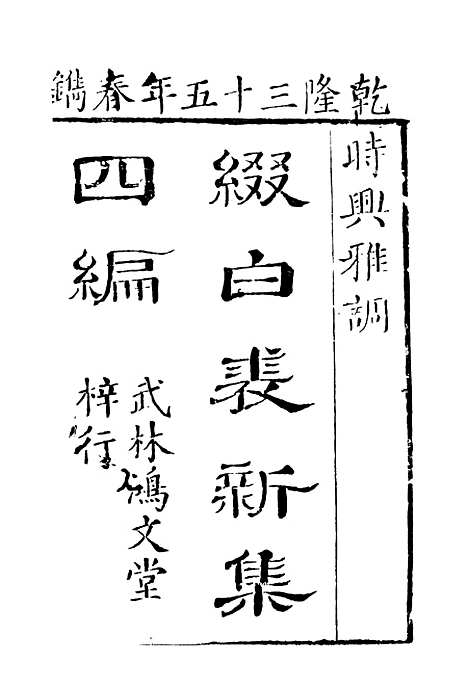 乾隆三十五年春鐫
時興雅調
綴白裘新集
四編
武林鴻文堂
梓行